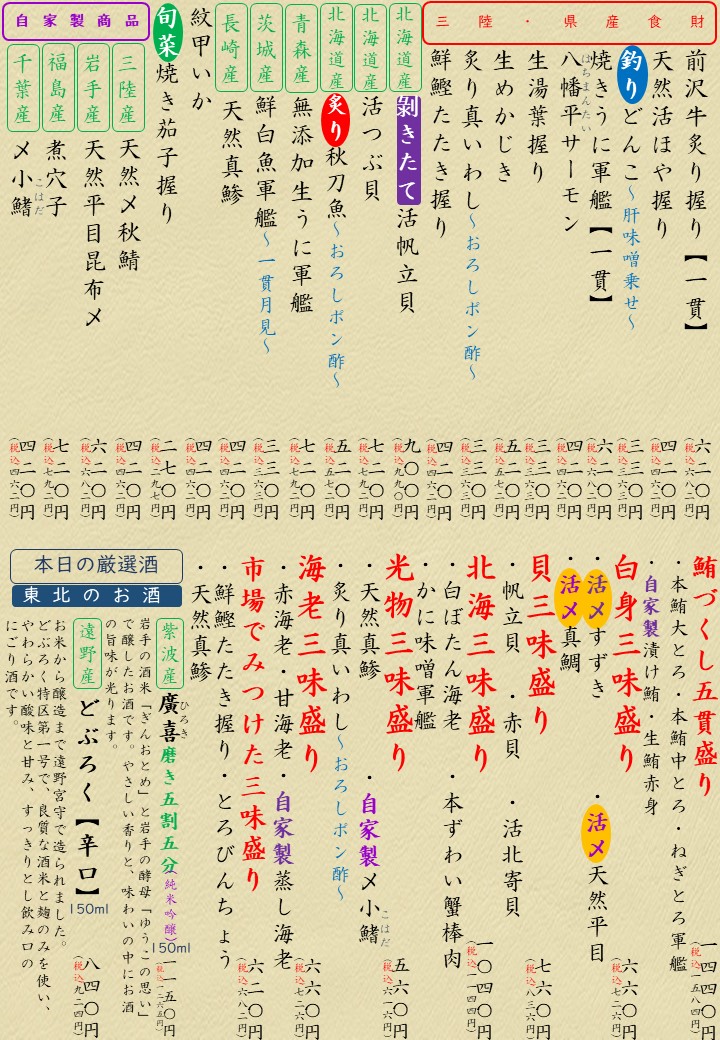 三陸・県産食財
前沢牛炙り握り【一貫】
六二〇円
(税込六八二円)
天然活ほや握り
四二〇円
(税込四六二円)
釣り どんこ～肝味噌乗せ～
三三〇円
(税込三六三円)
焼きうに軍艦【一貫】
六二〇円
(税込六八二円)
八幡平サーモン
はちまんたい
四二〇円
(税込四六二円)
生湯葉握り
三三〇円
(税込三六三円)
生めかじき
五二〇円
(税込五七二円)
炙り真いわし～おろしポン酢～
三三〇円
(税込三六三円)
鮮鰹たたき握り
四二〇円
(税込四六二円)
北海道産
剝きたて 活帆立貝
九〇〇円
(税込九九〇円)
北海道産
活つぶ貝
七二〇円
(税込七九二円)
北海道産
炙り 秋刀魚～おろしポン酢～
五二〇円
(税込五七二円)
青森産
無添加生うに軍艦
七二〇円
(税込七九二円)
茨城産
鮮白魚軍艦～一貫月見～
三三〇円
(税込三六三円)
長崎産
天然真鯵
四二〇円
(税込四六二円)
紋甲いか
四二〇円
(税込四六二円)
旬菜 焼き茄子握り
二七〇円
(税込二九七円)
自家製商品
三陸産
天然〆秋鯖
四二〇円
(税込四六二円)
岩手産
天然平目昆布〆
六二〇円
(税込六八二円)
福島産
煮穴子
七二〇円
(税込七九二円)
千葉産
〆小鰭
こはだ
四二〇円
(税込四六二円)
鮪づくし五貫盛り
・本鮪大とろ・本鮪中とろ・ねぎとろ軍艦
・自家製漬け鮪・生鮪赤身
一四四〇円
(税込一五八四円)
白身三味盛り
・活〆すずき ・活〆天然平目
・活〆真鯛
六六〇円
(税込七二六円)
貝三味盛り
・帆立貝 ・赤貝 ・活北寄貝
七六〇円
(税込八三六円)
北海三味盛り
・白ぼたん海老 ・本ずわい蟹棒肉
・かに味噌軍艦
一〇四〇円
(税込一一四四円)
光物三味盛り
・天然真鯵 ・自家製〆小鰭
こはだ
・炙り真いわし～おろしポン酢～
五六〇円
(税込六一六円)
海老三味盛り
・赤海老・甘海老・自家製蒸し海老
六六〇円
(税込七二六円)
市場でみつけた三味盛り
・鮮鰹たたき握り・とろびんちょう
・天然真鯵
六二〇円
(税込六八二円)
本日の厳選酒
東北のお酒
紫波産
廣喜 磨き五割五分(純米吟醸)
ひろき
150ml
一一五〇円
(税込一二六五円)
岩手の酒米「ぎんおとめ」と岩手の酵母「ゆうこの思い」
で醸したお酒です。やさしい香りと、味わいの中にお酒
の旨味が光ります。
遠野産
どぶろく【辛口】
150ml
八四〇円
(税込九二四円)
お米から醸造まで遠野宮守で造られました。
どぶろく特区第一号で、良質な酒米と麹のみを使い、
やわらかい酸味と甘み、すっきりとし飲み口の
にごり酒です。